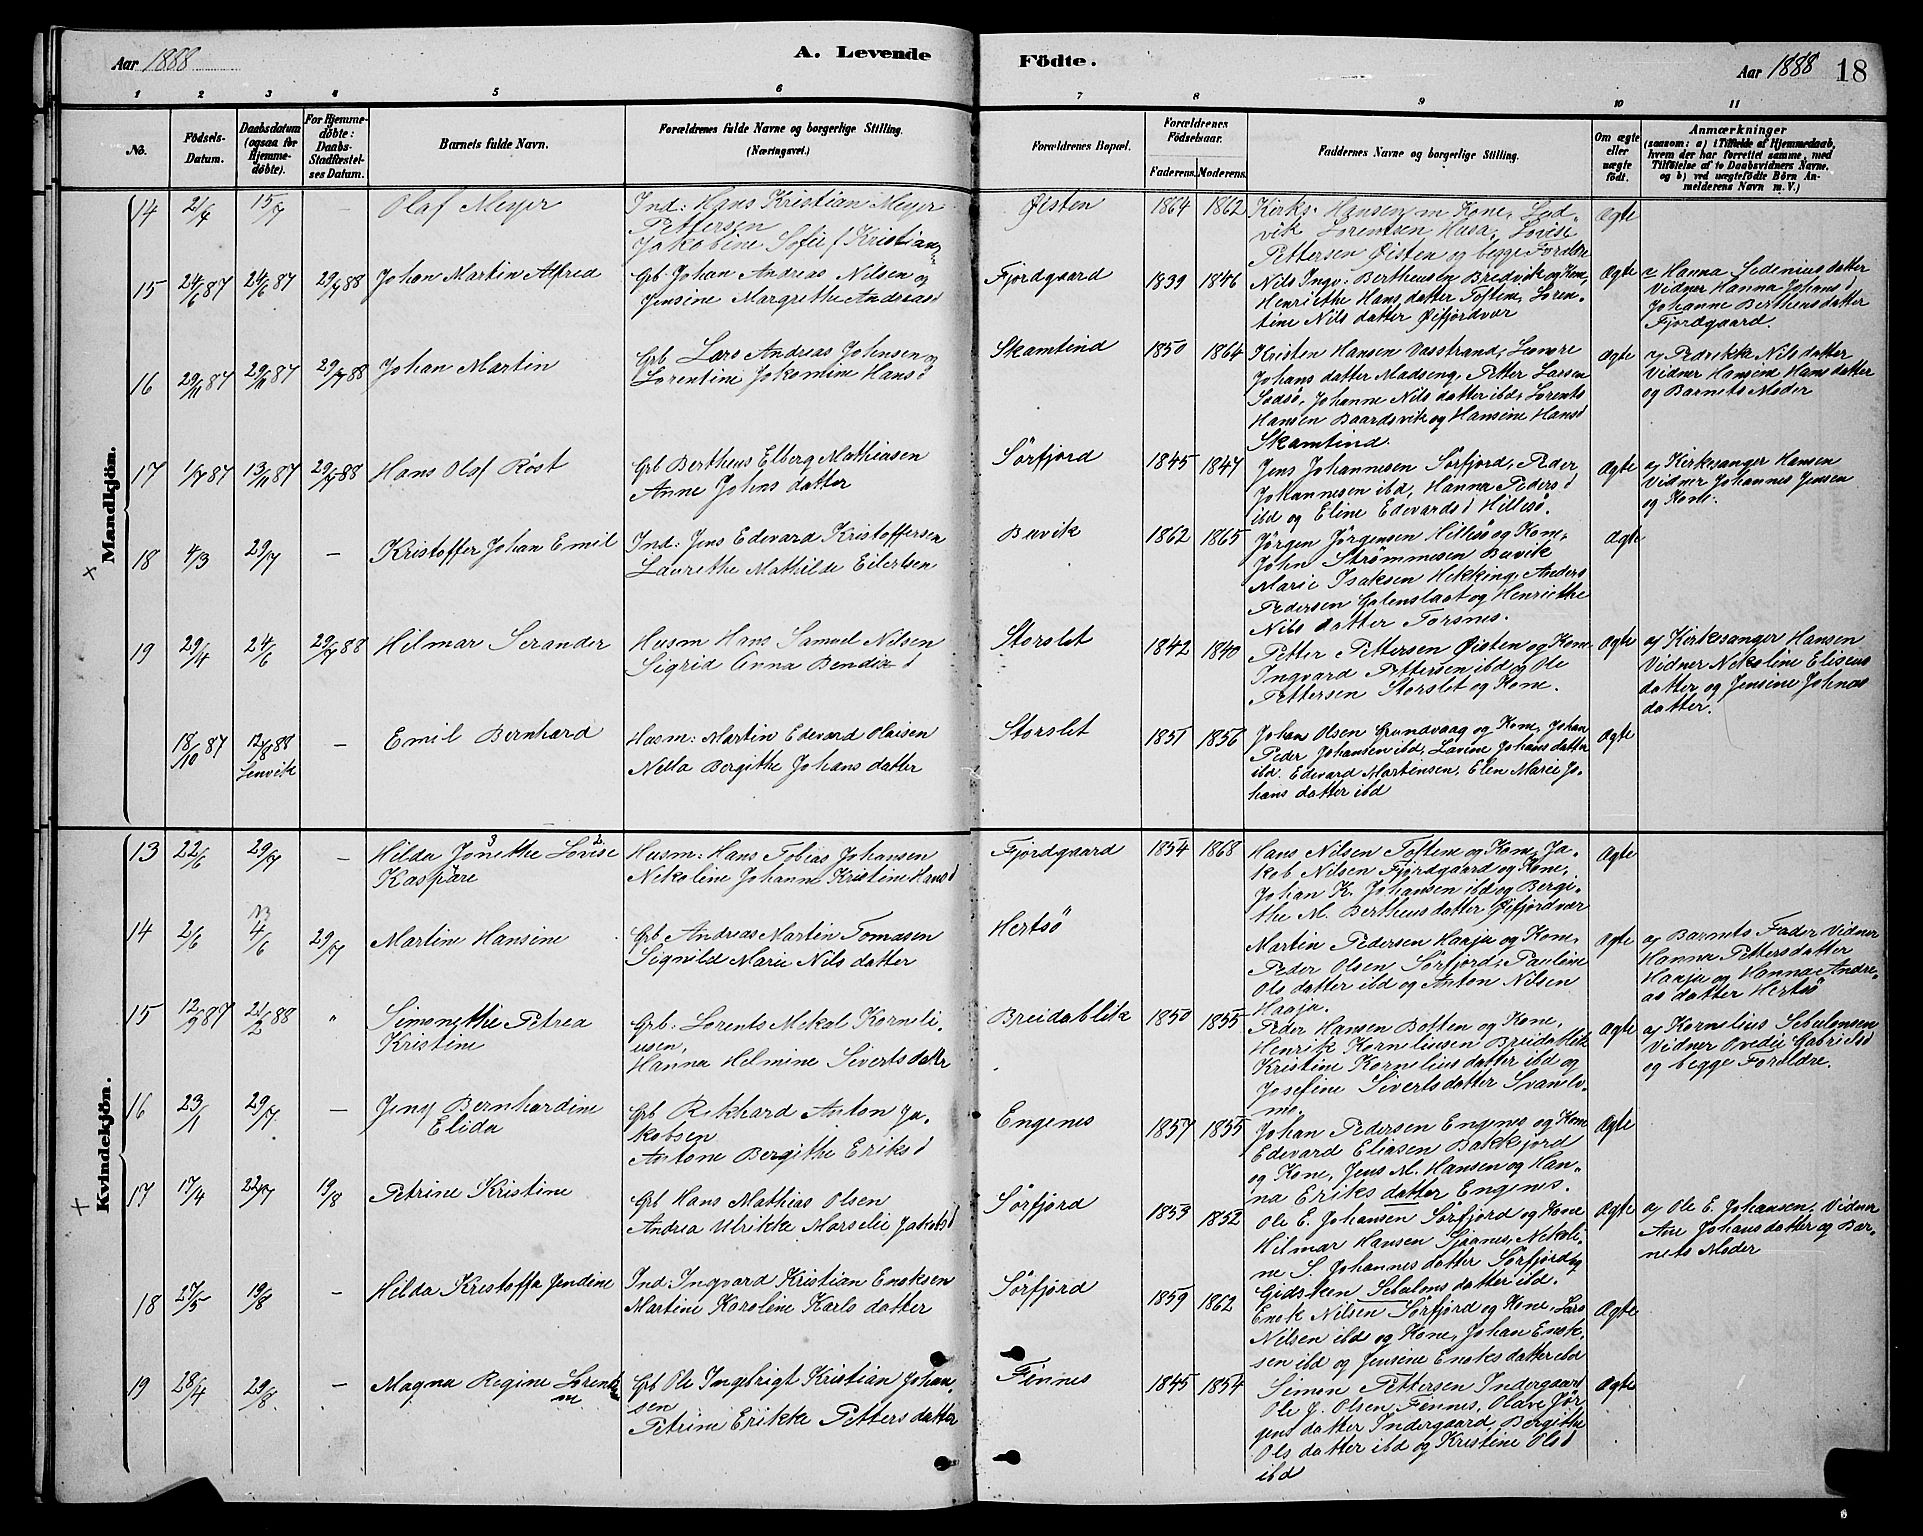 Aar 1888
A. Levende
Födte.
Aar 1888
18
1 2 3 4 5 6 7 8 9 10 11
No.
Födsels-Datum.
Daabsdatum (ogsaa for Hjemmedøbte).
For Hjemmedøbte: Daabs-Stadfæstelses Datum.
Barnets fulde Navn.
Forældrenes fulde Navne og borgerlige Stilling.
(Næringsvei.)
Forældrenes Bopæl.
Forældrenes Födselsaar.
Faderens. Moderens.
Faddernes Navne og borgerlige Stilling.
Om ægte eller uægte födt.
Anmærkninger
(saasom: a) i Tilfælde af Hjemmedaab, hvem der har forrettet samme, med Tilföielse af to Daabsvidners Navne. og b) ved uægtefödte Börn Anmelderens Navn m. V.)
Mandkjön.
14 21/4 15/7 — Olaf Meyer
Ind: Hans Kristian Meyer
Pettersen
Jakobine Sofie Kristian
Øisten 1864 1862
Kirks. Hansen m Kone, Lud-
vik Lorentsen Husø, Lovise
Pettersen Øisten og begge Foreldre
Ægte
15 24/6 87 24/6 87 29/7 88 Johan Martin Alfred
Grb Johan Andreas Nilsen og
Jensine Margrethe Andreasd
Fjordgaard 1839 1846
Nils Ingv. Bertheusen Bredvik og Kone,
Henriethe Hans datter Toften, Loren-
tine Nils datter Øifjordvær
Ægte
a Hanna Sedenius datter
Vidner Hanna Johans d
Johanne Bertheus datter
Fjordgaard.
16 29/11 87 29/11 87 29/7 88 Johan Martin
Grb Lars Andreas Johnsen og
Lorentine Jakomine Hans d
Skamtind 1850 1864
Kristen Hansen Vasstrand, Lovise
Johans datter Madseng, Petter Larsen
Sodsø, Johanne Nils datter ibd, Lorents
Hansen Baardsvik og Hansine Hans d
Skamtind.
Ægte
a, Fredrikke Nils datter
Vidner Hansine Hans datter
og Barnets Moder
17 1/7 87 13/11 87 29/7 88 Hans Olaf Røst
Grb Bertheus Elberg Mathiasen
Anne Johns datter
Sörfjord 1845 1847
Jens Johannesen Sörfjord, Peder
Johannesen ibd, Hanna Peders d
ibd og Eline Edevards d Hillesö.
Ægte
a, Kirkesanger Hansen
Vidner Johannes Jensen
og Kone.
18 4/3 29/7 — Kristoffer Johan Emil
Ind: Jens Edevard Kristoffersen
Laurethe Mathilde Eilertsen
Buvik 1862 1865
Jörgen Jörgensen Hillesö og Kone,
John Strömmesen Buvik
Marie Isaksen Hekking, Anders
Pedersen Galenslaat og Henriethe
Nils datter Torsnes.
Ægte
19 29/4 24/6 29/7 88 Hilmar Serander
Husm Hans Samuel Nilsen
Sigrid Enna Bendix d
Storslet 1842 1840
Petter Pettersen Øisten og Kone
Ingvard Pettersen ibd og Ole
Pettersen Storslet og Kone.
Ægte
a, Kirkesanger Hansen
Vidner Nekoline Eliseus
datter og Jensine Johnas
datter.
18/10 87 12/8 88 — Emil Bernhard
Lenvik
Husm: Martin Edevard Olaisen
Nella Bergithe Johans datter
Storslet 1851 1856
Johans Olsen Grundvaag og Kone, Johan
Peder Johansen ibd, Lavine Johans datter
ibd. Edevard Martinsen, Elen Marie Jo-
hans datter ibd
Ægte
Kvindekjön.
13 22/6 29/7 — Hilda Jonethe Lovise
Kaspare
Husm: Hans Tobias Johansen
Nekoline Johanne Kristine Hans d
Fjordgaard 1854 1868
Hans Nilsen Toftene og Kone, Ja-
kob Nilsen Fjordgaard og Kone,
Johan K. Johansen ibd og Bergi-
the M. Bertheus datter Øifjordvær
Ægte
14 2/6 4/6 29/7 Martine Hansine
Grb Andreas Martin Tomasen
Signild Marie Nils datter
Hertsö
Martin Pedersen Haaja og Kone,
Peder Olsen Sörfjord, Pauline
Ols datter ibd og Anton Nilsen
Haaja.
Ægte
a, Barnets Fader Vidner
Hanna Petters datter
Haaja og Hanna Andre-
as datter Hertsö
15 12/9 87 21/2 88 " Simonethe Petrea
Kristine
Grb. Lorents Mekal Korneli-
usen,
Hanna Helmine Siverts datter
Breidablik 1850 1855
Peder Hansen Botten og Kone,
Henrik Korneliusen Breidablik
Kristine Kornelius datter ibd og
Josefine Siverts datter Svanel-
mo.
Ægte
a, Kornelius Sebulonsen
Vidner Ovedie Gabriels d
og begge Foreldre.
16 23/1 29/7 — Jeny Bernhardine
Elida
Grb Rikhard Anton Ja-
kobsen
Antone Bergithe Eriks d
Engenes 1857 1855
Johan Pedersen Engenes og Kone
Edevard Eliasen Bakkejord
og Kone, Jens M. Hansen og Han-
na Eriks datter Engenes.
Ægte
17 17/4 22/7 19/8 Petrine Kristine
Grb Hans Mathias Olsen
Andrea Ulrikke Marselie Jakobs d
Sörfjord 1853 1852
Ole E. Johansen Sörfjord og Kone
Hilmar Hansen Tjaanes, Nekoli-
ne S. Johannes datter Sörfjord og
Gidsken Sebulons datter ibd.
Ægte
a, Ole E. Johansen. Vidner
Ane Johans datter og Bar-
nets Moder
18 27/5 19/8 — Hilda Kristoffa Jendine
Ind: Ingvard Kristian Enoksen
Martine Karoline Karls datter
Sörfjord 1859 1862
Enok Nilsen Sörfjord og Kone, Lars
Nilsen ibd og Kone, Johan Enok-
sen ibd og Jensine Enoks datter ibd
Ægte
19 28/4 29/8 — Magna Regine Lorentine
Grb Ole Ingebrigt Kristian Johan-
sen
Petrine Erikke Petters datter
Finnes 1845 1854
Simon Pettersen Indergaard
Ole J. Olsen Finnes, Olave Jör-
gens datter Indergaard, Bergithe
Ols datter ibd og Kristine Ols d
ibd
Ægte